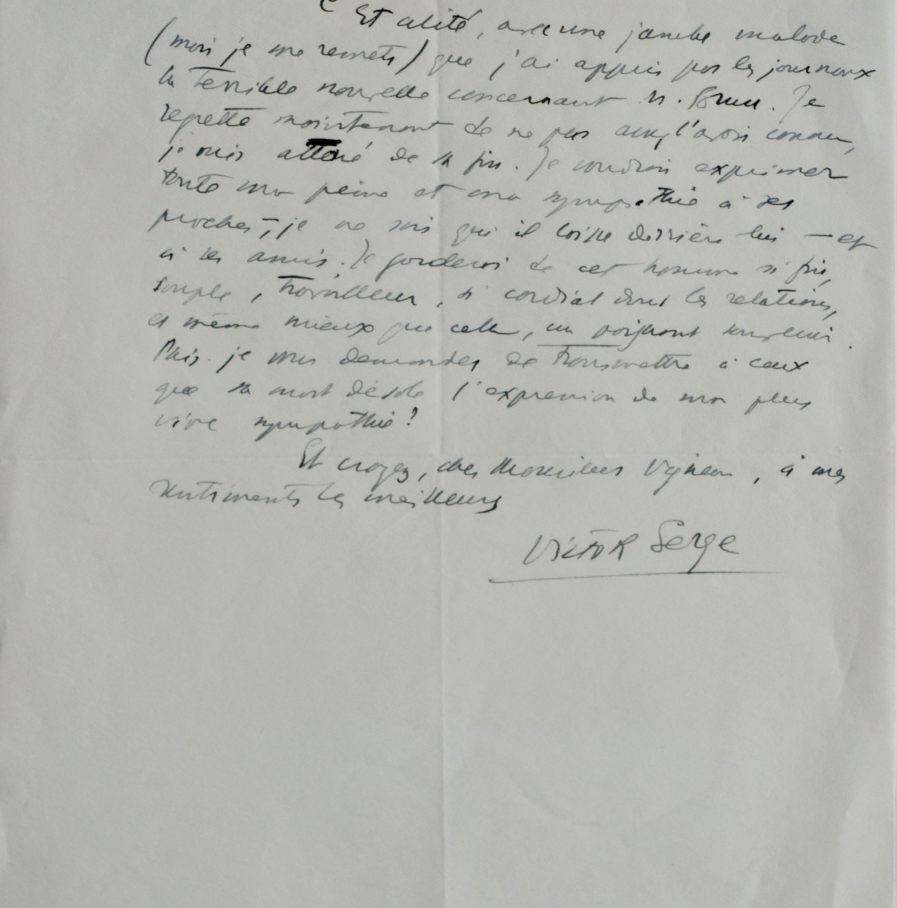 Est alité, avec une jambe malade
(mais je me remets) que j'ai appris par les journaux
la terrible nouvelle concernant M. Je
regrette maintenant de ne pas l'avoir connu,
je suis atterré de sa fin. Je voudrais exprimer
toute ma peine et ma sympathie à ses
proches, – je ne sais qui il laisse derrière lui – et
à ses amis. Je garderai de cet homme si fin,
souple, travailleur, si cordial dans les relations,
et même mieux que cela, un poignant souvenir.
Puis-je vous demander de transmettre à ceux
que sa mort désole l'expression de ma plus
vive sympathie?
Et croyez, cher Monsieur, à mes
sentiments les meilleurs
Victor Serge